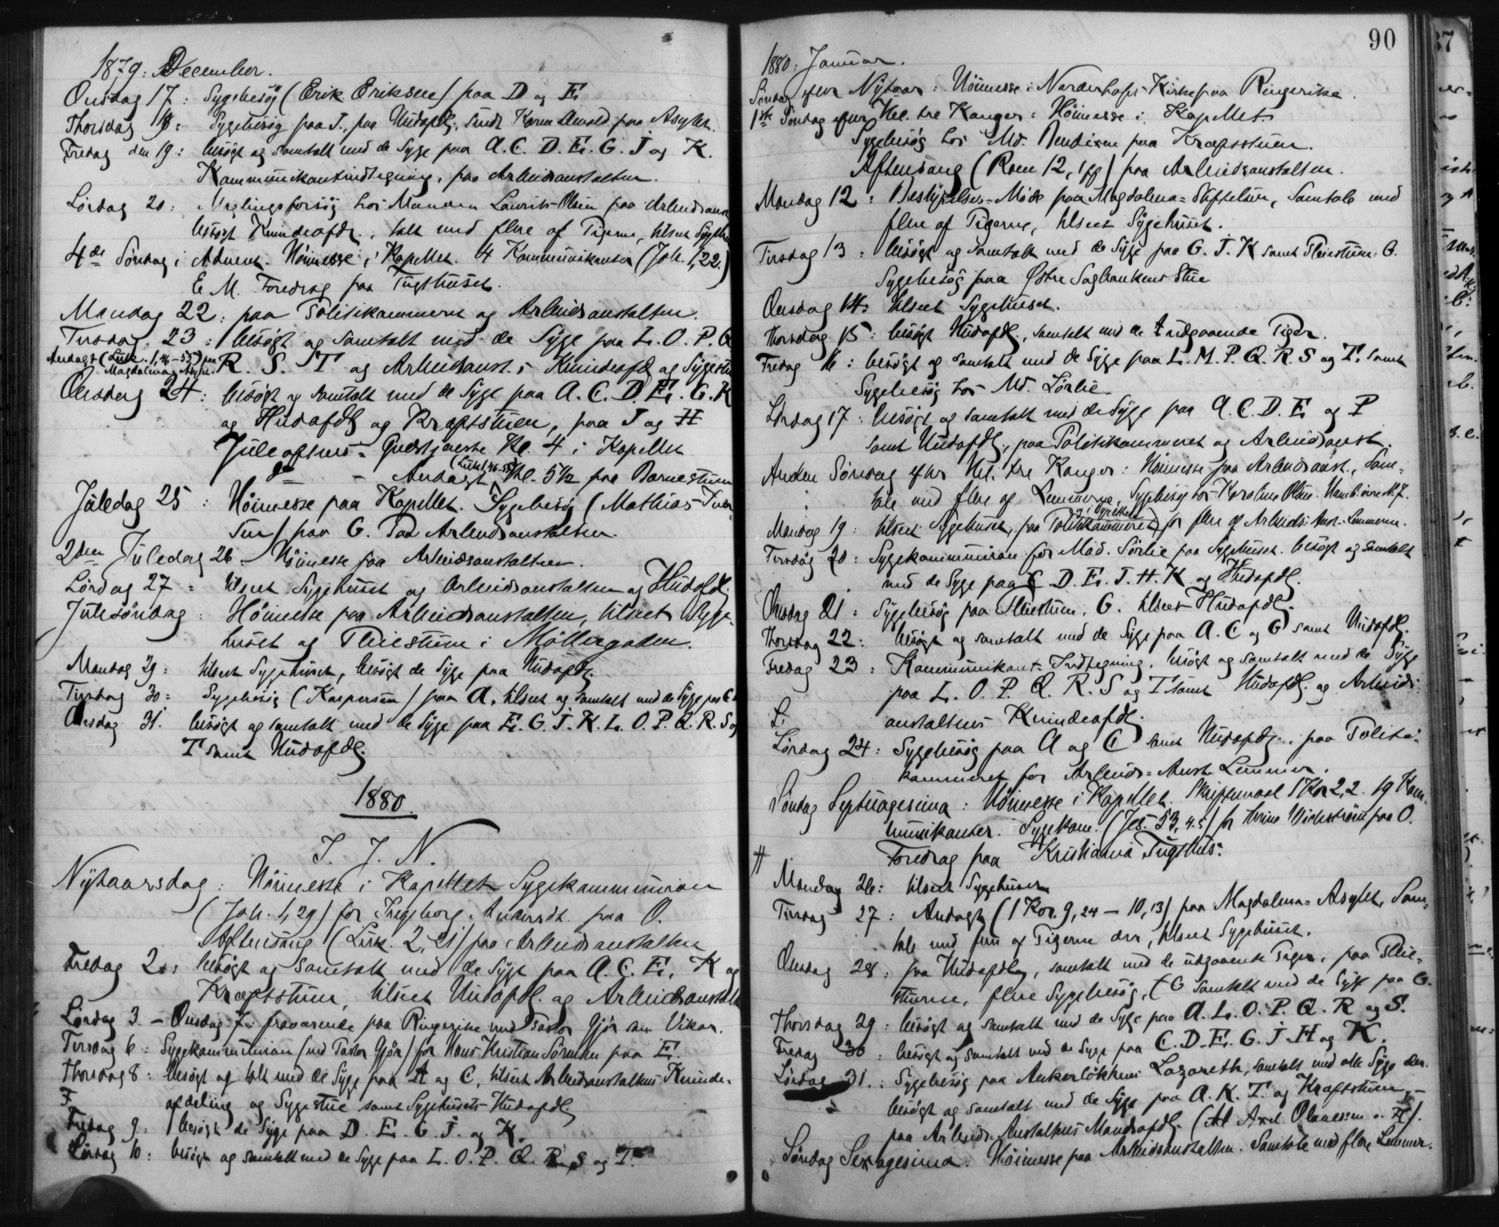 1879: December.
Onsdag 17: Sygebesög (Erik Eriksen) paa D og E.
Thorsdag 18: Sygebesög paa I., paa Hudafdlg. paa Asylet.
Fredag den 19: besögt og samtalt med de Syge paa A. C. D. E. G. I og K.
Kommunikantindtegning, paa Arbeidsanstalten.
Lördag 20: Meglingsforsög hos Manden Laurits Olsen paa Arbeidsanst
besögt Kvindeafdl., talt med flere af Pigerne, tilseet Sygeh
4de Söndag i Advent. Höimesse i Kapellet. 4 Kommunikanter (Joh. 1,22.)
E. M. Foredrag paa Tugthuset.
Mandag 22: paa Politikammeret og Arbeidsanstalten.
Tirsdag 23: besögt og samtalt med de Syge paa L. O. P. Q
Andagt (Luk. 1,46-55) paa Magdalena Asylet. R. S. T og Arbeidsanst.s Kvindeafdl og Sygestu
Onsdag 24: besögt og samtalt med de Syge paa A. C. D. E. G. K
og Hudafdlg og Kræftstuen, paa I og H
Juleaftens-Gudstjeneste Kl. 4 i Kapellet
do - Andagt (Luk 1,46-55) Kl. 5½ paa Barnestuen
Juledag 25: Höimesse paa Kapellet. Sygebesög (Mathias Iver-
sen) paa G. Paa Arbeidsanstalten.
2den Juledag 26 - Höimesse paa Arbeidsanstalten.
Lördag 27 - tilseet Sygehuset og Arbeidsanstalten og Hudafdlg
Julesöndag: Höimesse paa Arbeidsanstalten, tilseet Syge-
huset og Pleiestuen i Möllergaden.
Mandag 29: tilseet Sygehuset, besögt de Syge paa Hudafdlg.
Tirsdag 30: Sygebesög (Kaspersen) paa A, tilseet og samtalt med de Syge paa C
Onsdag 31. besögt og samtalt med de Syge paa E. G. I. K. L. O. P. Q. R. S og
T samt Hudafdlg
1880.
I. J. N.
Nytaarsdag: Höimesse i Kapellet. Sygekommunion
(Joh. 1,29) for Ingeborg Andersdt. paa O.
Aftensang (Luk. 2, 21) paa Arbeidsanstalten
Fredag 2: besögt og samtalt med de Syge paa A. C. E. K og
Kræftstuen, tilseet Hudafdl. og Arbeidsanstalt
Lördag 3 - Onsdag 7: fraværende paa Ringerike med Pastor Gjör som Vikar.
Tirsdag 6: Sygekommunion (ved Pastor Gjör) for Hans Kristian Sörensen paa E.
Thorsdag 8: besögt og talt med de Syge paa A og C, tilseet Arbeidsanstaltens Kvinde-
F. afdeling og Sygestue samt Sygehusets Hudafdlg
Fredag 9: besögt de Syge paa D. E. G. I. og K.
Lördag 10: besögt og samtalt med de Syge paa L. O. P. Q. R. S og T.
90
1880. Januar.
Söndag efter Nytaar: Höimesse i Norderhofs Kirke paa Ringerike.
1ste Söndag efter Hel. tre Konger: Höimesse i Kapellet
Sygebesög hos Md. Bendixen paa Kræftstuen.
Aftensang (Rom 12, 1ff) paa Arbeidsanstalten.
Mandag 12: Bestyrelses-Möde paa Magdalena-Stiftelsen, Samtale med
flere af Pigerne, tilseet Sygehuset.
Tirsdag 13: besögt og samtalt med de Syge paa G. I. K samt Pleiestuen G.
Sygebesög paa Östre Sagbankens Stue
Onsdag 14: tilseet Sygehuset.
Thorsdag 15: besögt Hudafdlg, samtalt med de udgaaende Piger.
Fredag 16: besögt og samtalt med de Syge paa L. M. P. Q. R. S og T. samt
Sygebesög hos Md. Sörlie
Lördag 17: besögt og samtalt med de Syge paa A. C. D. E og P
samt Hudafdlg, paa Politikammeret og Arbeidsanst.
Anden Söndag efter Hel. tre Konger: Höimesse paa Arbeidsanst., Sam-
tale med flere af Lemmerne, Sygebesög hos Karoline Olsen
Mandag 19: tilseet Sygehuset, paa Politikammeret for flere af Arbeids-Anst.-Lemmerne.
Tirsdag 20: Sygekommunion for Mad. Sörlie paa Sygehuset. besögt og samtalt
med de Syge paa C. D. E. I. H. K og Hudafdlg.
Onsdag 21: Sygebesög paa Pleiestuen, G. tilseet Hudafdlg.
Thorsdag 22: besögt og samtalt med de Syge paa A. C og G samt Hudafdlg.
Fredag 23: Kommunikant-Indtegning, besögt og samtalt med de Syge
paa L. O. P. Q. R. S og T samt Hudafdlg. og Arbeids-
L. anstaltens Kvindeafdl.
Lördag 24: Sygebesög paa A og C samt Hudafdlg. paa Politi-
kammeret for Arbeids-Anst. Lemmer.
Söndag Septuagesima: Höimesse i Kapellet. Skriftemaal 1 Kor 2,2. 19 Kom-
munikanter. Sygekom. (Jes. 53, 4.5) for paa O.
Foredrag paa Kristiania Tugthus.
Mandag 26: tilseet Sygehuset
Tirsdag 27: Andagt (1 Kor. 9,24 - 10,13) paa Magdalena-Asylet, Sam-
tale med fem af Pigerne der, tilseet Sygehuset.
Onsdag 28: paa Hudafdlg, samtalt med de udgaaende Piger, paa Pleie-
stuerne, flere Sygebesög, samtalt med de Syge paa G.
Thorsdag 29: besögt og samtalt med de Syge paa A. L. O. P. Q. R og S.
Fredag 30: besögt og samtalt med de Syge paa C. D. E. G. I. H og K.
Lördag 31.: Sygebesög paa Ankerlökkens Lazareth, samtalt med alle Syge der.
besögt og samtalt med de Syge paa A. K. T. og Kræftstuen,
paa Arbeids-Anstaltens Mandsafdlg.
Söndag Sexagesima: Höimesse paa Arbeidsanstalten. Samtale med flere Lemmer.